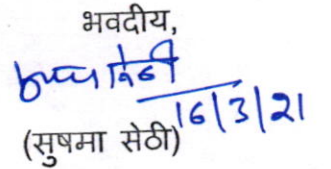 भवदीय,
16/3/21
(सुषमा सेठी)